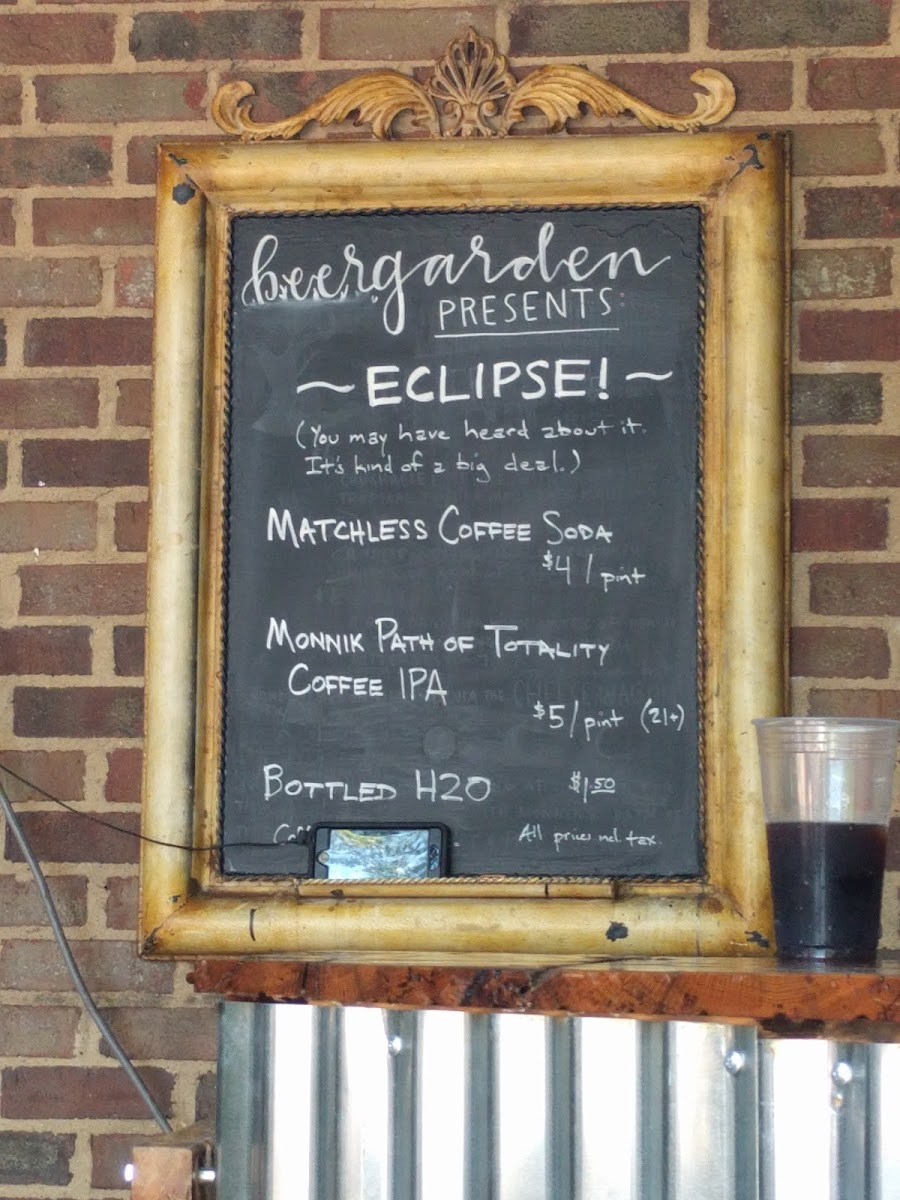 beergarden
PRESENTS:
~ECLIPSE!~
(You may have heard about it.
It's kind of a big deal.)
MATCHLESS COFFEE SODA
$4/pint
MONNIK PATH OF TOTALITY
COFFEE IPA
$5/pint (21+)
BOTTLED H2O $1.50
All prices incl. tax.